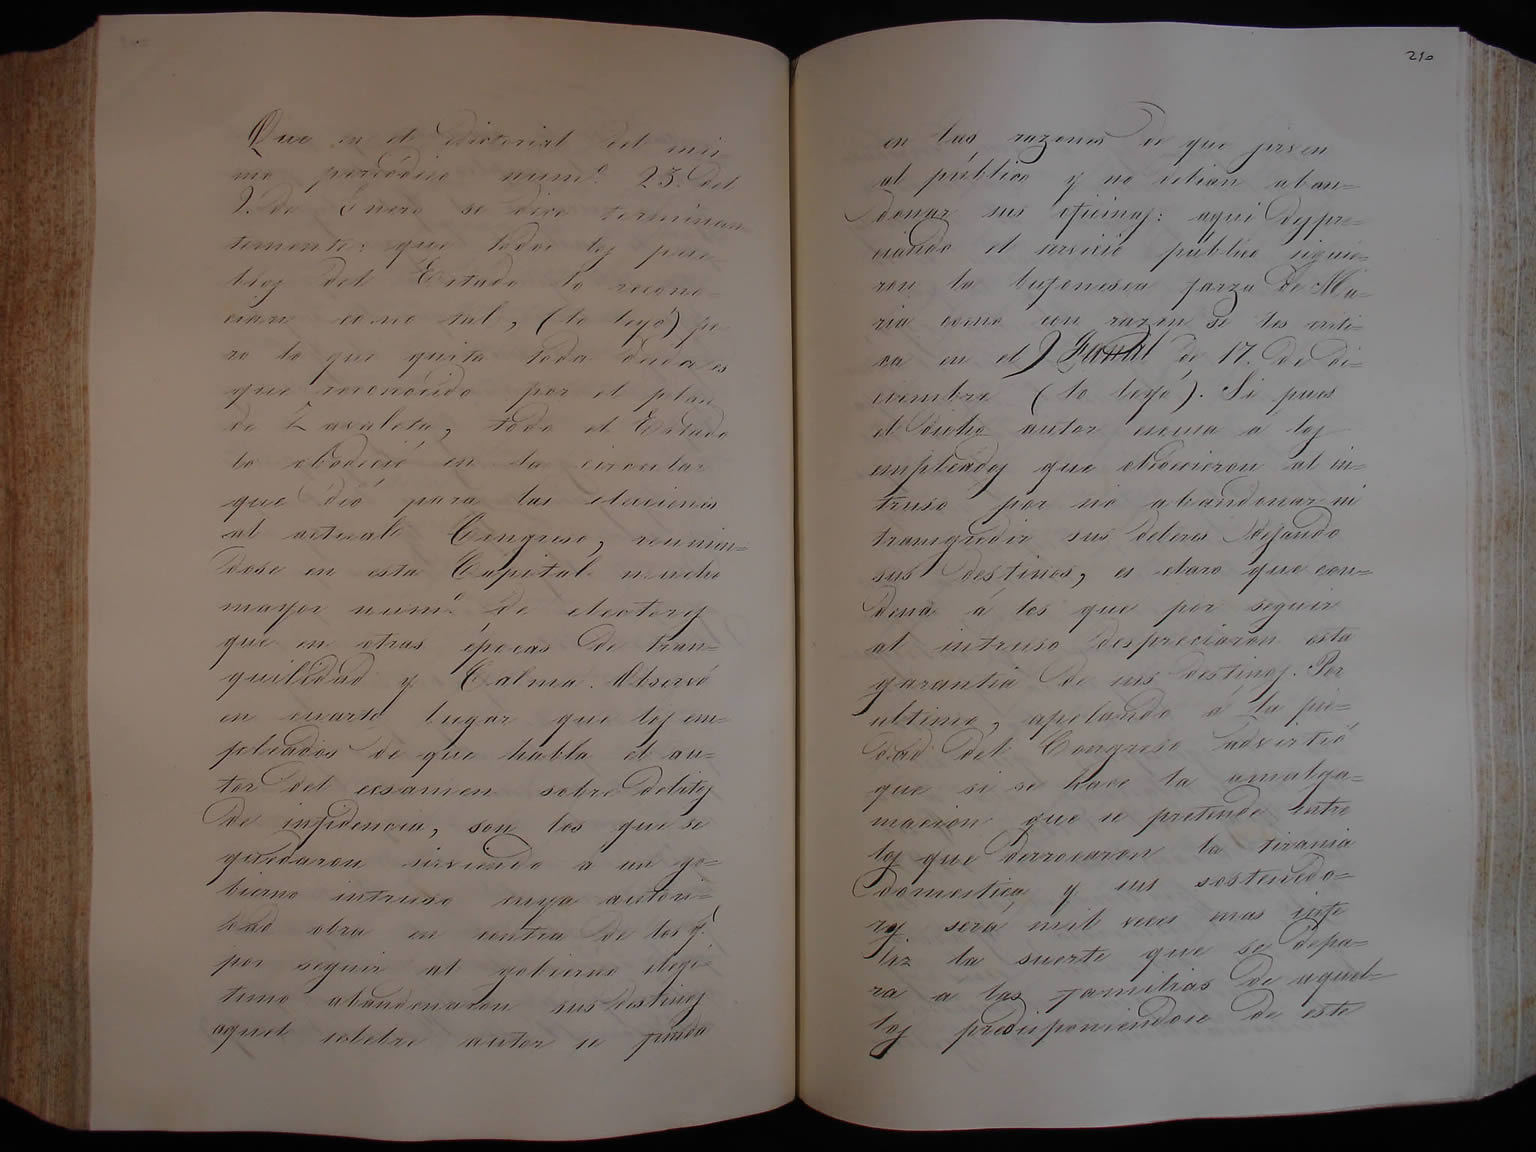 Que en el Editorial del mis
mo periódico num.º 23. del
9. de Enero se dice terminan
temente: que todos los pue
blos del Estado lo recono-
cian como tal, (lo leyó) pe
ro lo que quita toda duda es
que reconocido por el plan
de Zavaleta, todo el Estado
lo obedeció en la circular
que dió para las elecciones
al actual Congreso, reunien=
dose en esta Capital mucho
mayor num.º de electores
que en otras épocas de tran=
quilidad y Calma. Observó
en cuarto lugar que los em=
pleados de que habla el au=
tor del ecsamen sobre delitos
de infidencia, son los que se
quedaron sirviendo a un go=
bierno intruso cuya autori=
dad obra en contra de los q.
por seguir al gobierno legi
timo abandonaron sus destinos
aquel celebre autor se funda
210
en las razones de que sirven
al público y no debian aban=
donar sus oficinas: aqui despre=
ciando el servicio público siguie=
ron la bufonesca farza de Ma=
ria como con razon se les criti=
ca en el Fanal de 17. de Di=
ciembre (lo leyó). Si pues
el dicho autor escusa a los
empleados que obedecieron al in=
truso por no abandonar ni
transgredir sus deberes dejando
sus destinos, es claro que con=
dena á los que por seguir
al intruso despreciaron esta
garantia de sus destinos. Por
ultimo, apelando á la pie=
dad del Congreso advirtió
que si se hace la amalga=
macion que se pretende entre
los que derrocaron la tirania
domestica y sus sostenedo=
res será mil veces mas infe
liz la suerte que se depa=
ra a las familias de aquel=
los predisponiendose de este